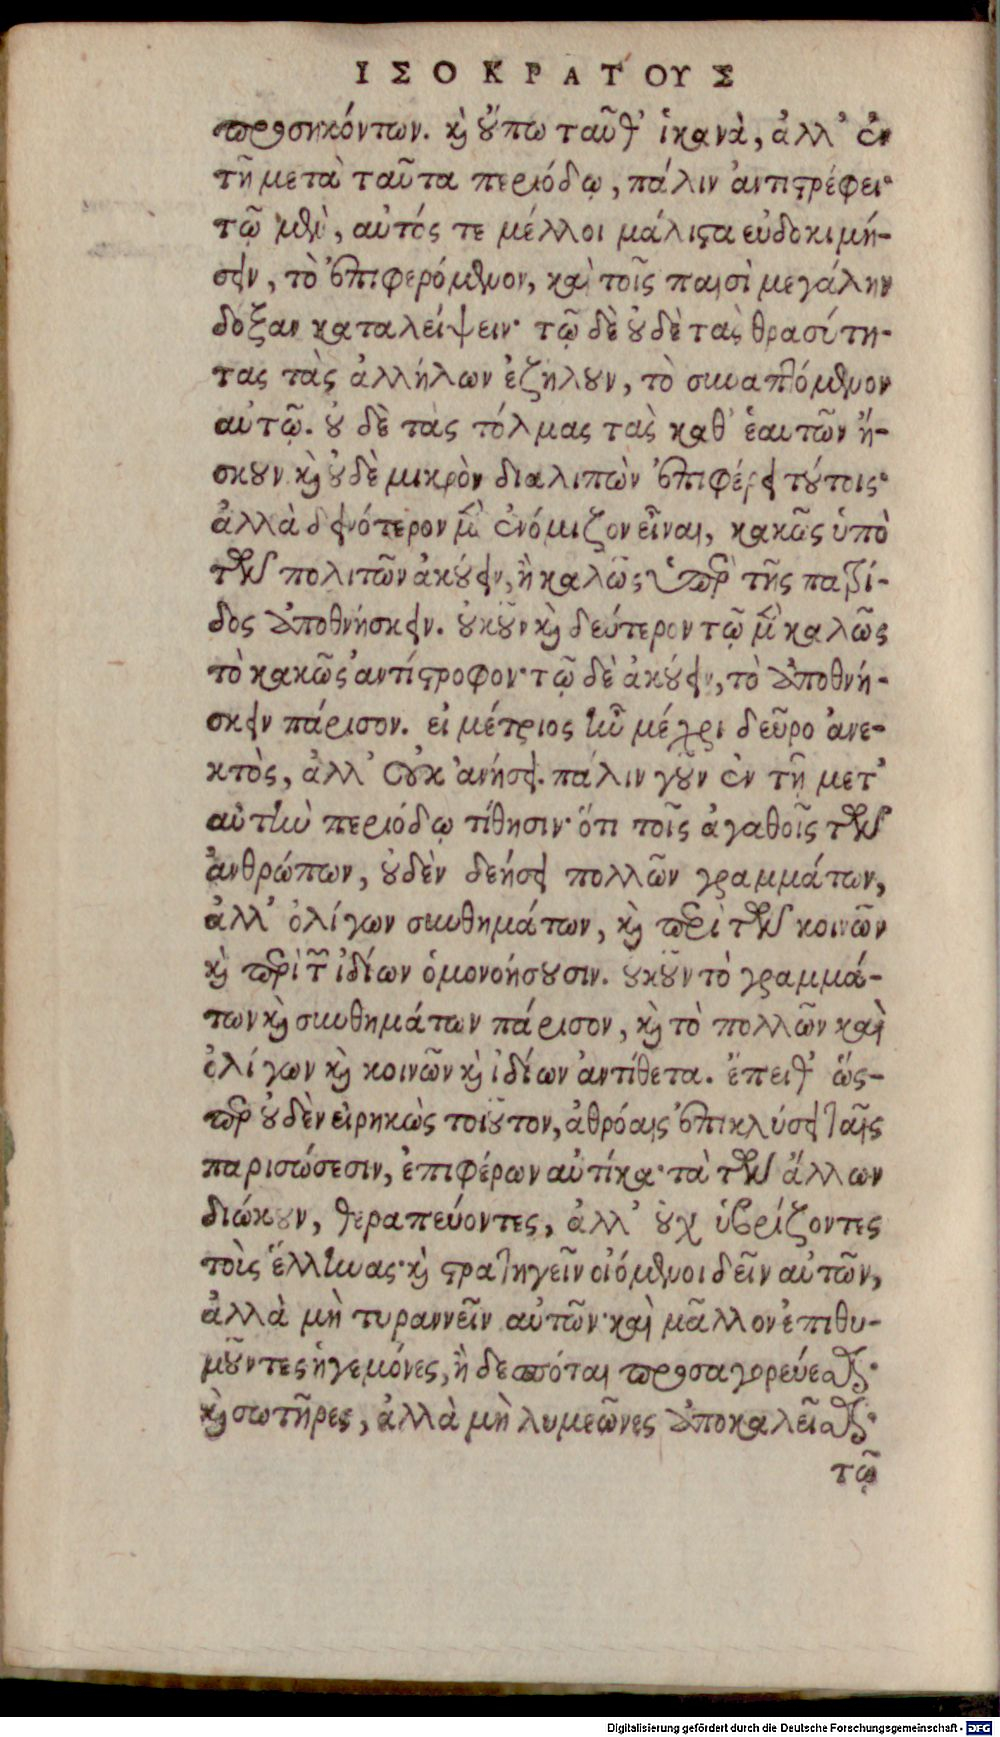 ΙΣΟΚΡΑΤΟΥΣ
προσηκόντων. καὶ οὔπω ταῦθ' ἱκανὰ, ἀλλ' ἐν
τῇ μετὰ ταῦτα περιόδῳ, πάλιν ἀντιστρέφει·
τῷ μὲν, αὐτός τε μέλλοι μάλιστα εὐδοκιμή-
σειν, τὸ ἐπιφερόμενον, καὶ τοῖς παισὶ μεγάλην
δοξαν καταλείψειν· τῷ δὲ οὐδὲ τὰς θρασύτη-
τας τὰς ἀλλήλων ἐζήλουν, τὸ συναπτόμενον
αὐτῷ. οὐ δὲ τὰς τόλμας τὰς καθ' ἑαυτῶν ἤ-
σκουν καὶ οὐδὲ μικρὸν διαλιπὼν ἐπιφέρει τούτοις·
ἀλλὰ δεινότερον μὲν ἐνόμιζον εἶναι, κακῶς ὑπὸ
τῶν πολιτῶν ἀκούειν, ἢ καλῶς ὑπὲρ τῆς πατρί-
δος ἀποθνήσκειν. οὐκοῦν καὶ δεύτερον τῷ μὲν καλῶς
τὸ κακῶς ἀντίστροφον· τῷ δὲ ἀκούειν, τὸ ἀποθνή-
σκειν πάρισον. εἰ μέτριος ἦν μέχρι δεῦρο ἀνε-
κτὸς, ἀλλ' οὐκ ἀνήσει. πάλιν γοῦν ἐν τῇ μετ'
αὐτὴν περιόδῳ τίθησιν· ὅτι τοῖς ἀγαθοῖς τῶν
ἀνθρώπων, οὐδὲν δεήσει πολλῶν γραμμάτων,
ἀλλ' ὀλίγων συνθημάτων, καὶ περὶ τῶν κοινῶν
καὶ περὶ τῶν ἰδίων ὁμονοήσουσιν. οὐκοῦν τὸ γραμμά-
των καὶ συνθημάτων πάρισον, καὶ τὸ πολλῶν καὶ
ὀλίγων καὶ κοινῶν καὶ ἰδίων ἀντίθετα. ἔπειθ' ὥς-
περ οὐδὲν εἰρηκὼς τοιοῦτον, ἀθρόαις ἐπικλύσει ταῖς
παρισώσεσιν, ἐπιφέρων αὐτίκα· τὰ τῶν ἄλλων
διώκουν, θεραπεύοντες, ἀλλ' οὐχ ὑβρίζοντες
τοὺς ἕλληνας· καὶ στρατηγεῖν οἰόμενοι δεῖν αὐτῶν,
ἀλλὰ μὴ τυραννεῖν αὐτῶν· καὶ μᾶλλον ἐπιθυ-
μοῦντες ἡγεμόνες, ἢ δεσπόται προσαγορεύεσθαι·
καὶ σωτῆρες, ἀλλὰ μὴ λυμεῶνες ἀποκαλεῖσθαι·
τῷ
Digitalisierung gefördert durch die Deutsche Forschungsgemeinschaft - DFG